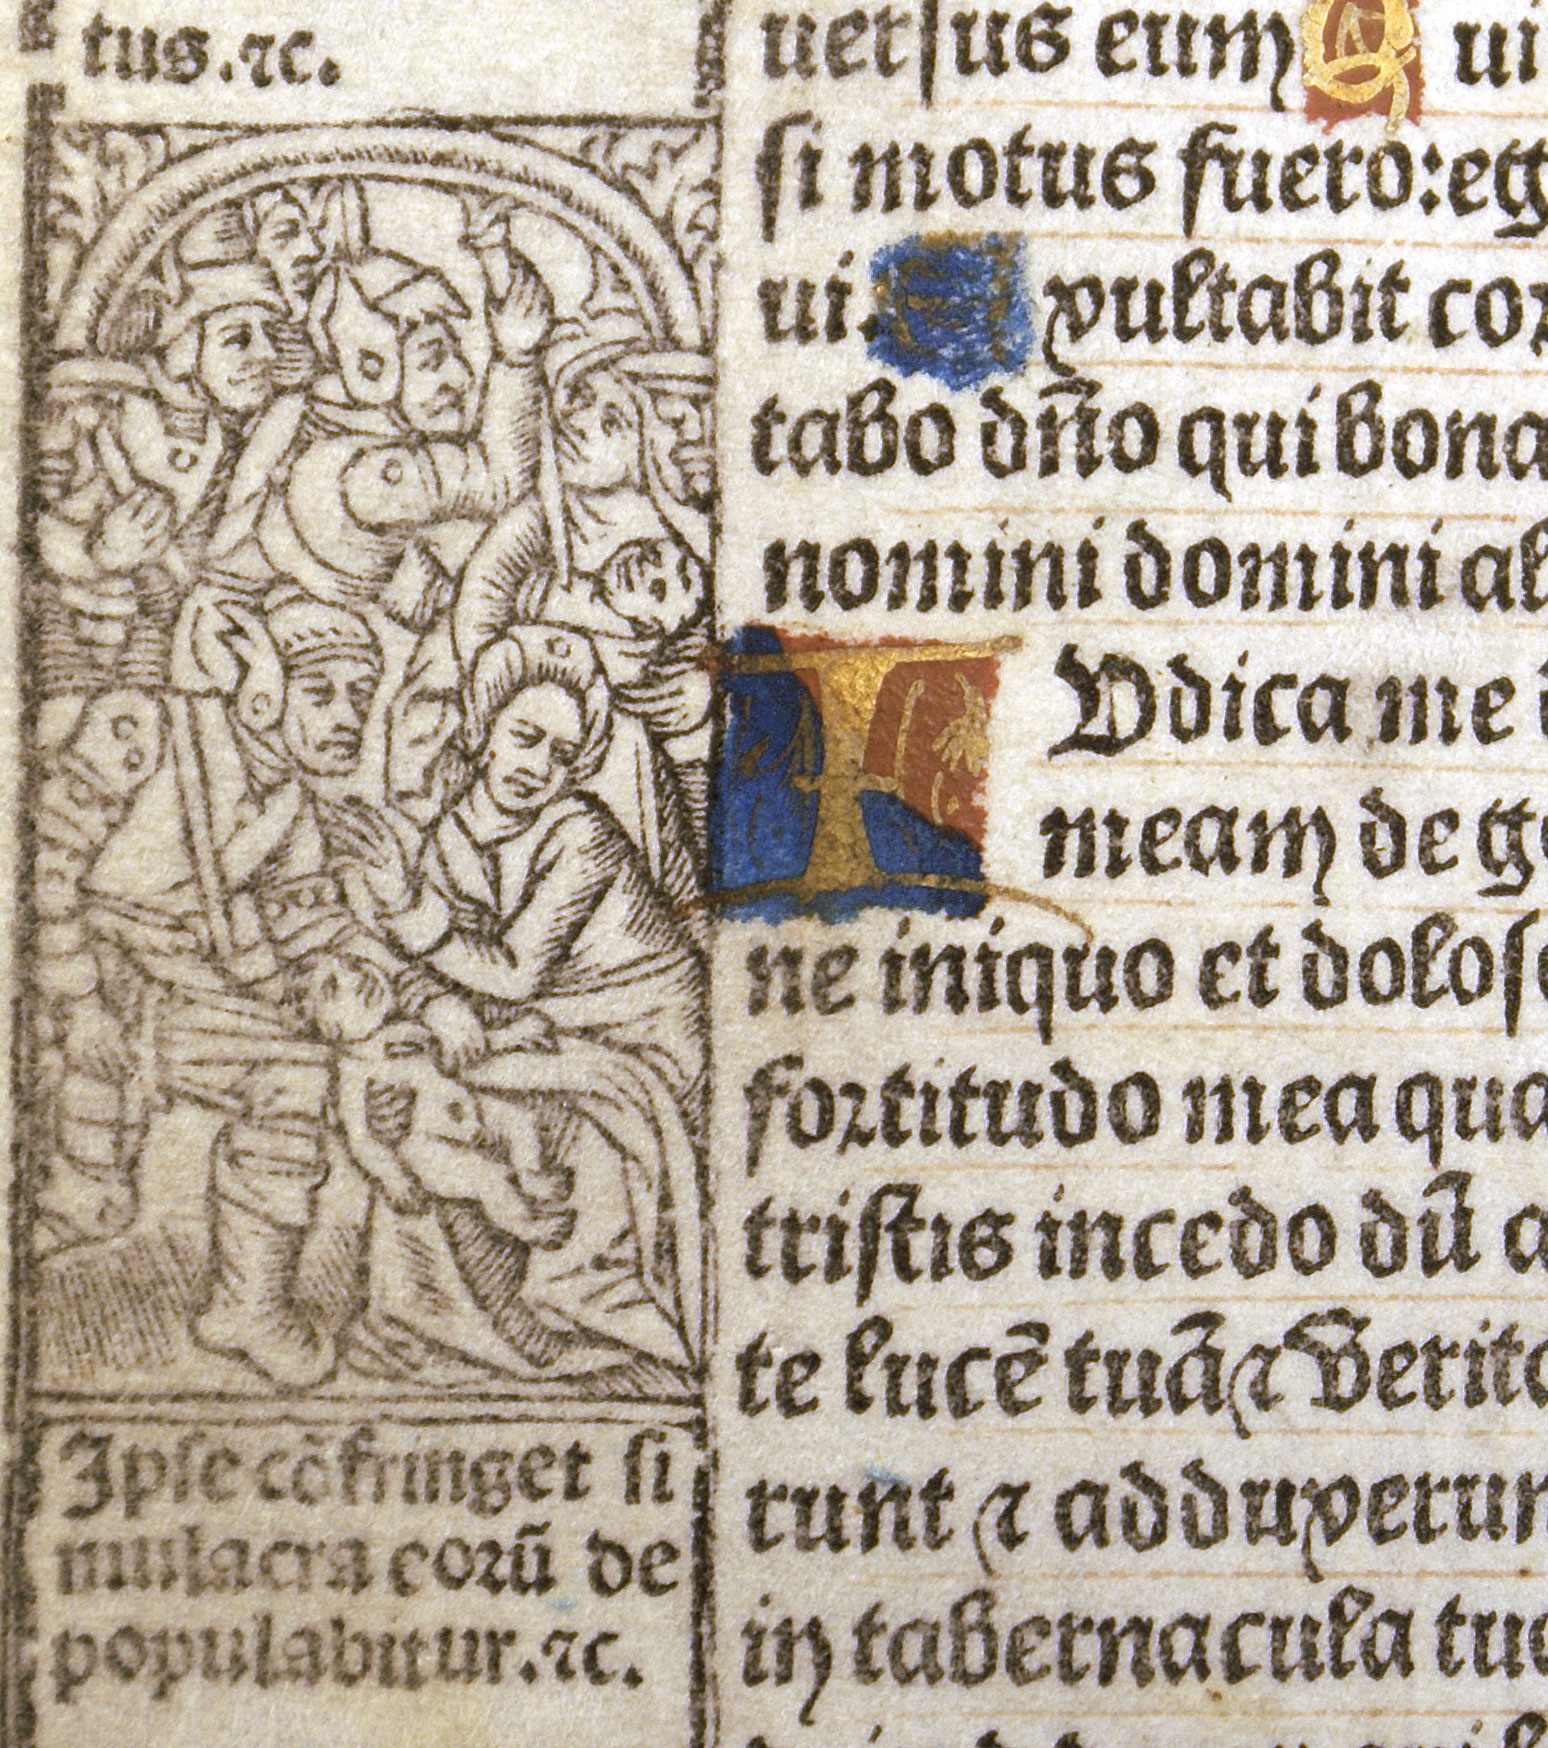 tus.⁊c.
Ipse cõfringet si
mulacra eorũ de
populabitur.⁊c.
uersus eum Q ui
si motus fuero:eg
ui. E xultabit cor
tabo dño qui bona
nomini domini al
I Vdica me d
meam de ge
ne iniquo et doloso
fortitudo mea qua
tristis incedo dũ a
te lucẽ tuã ⁊ verita
runt ⁊ adduxerun
in tabernacula tuo